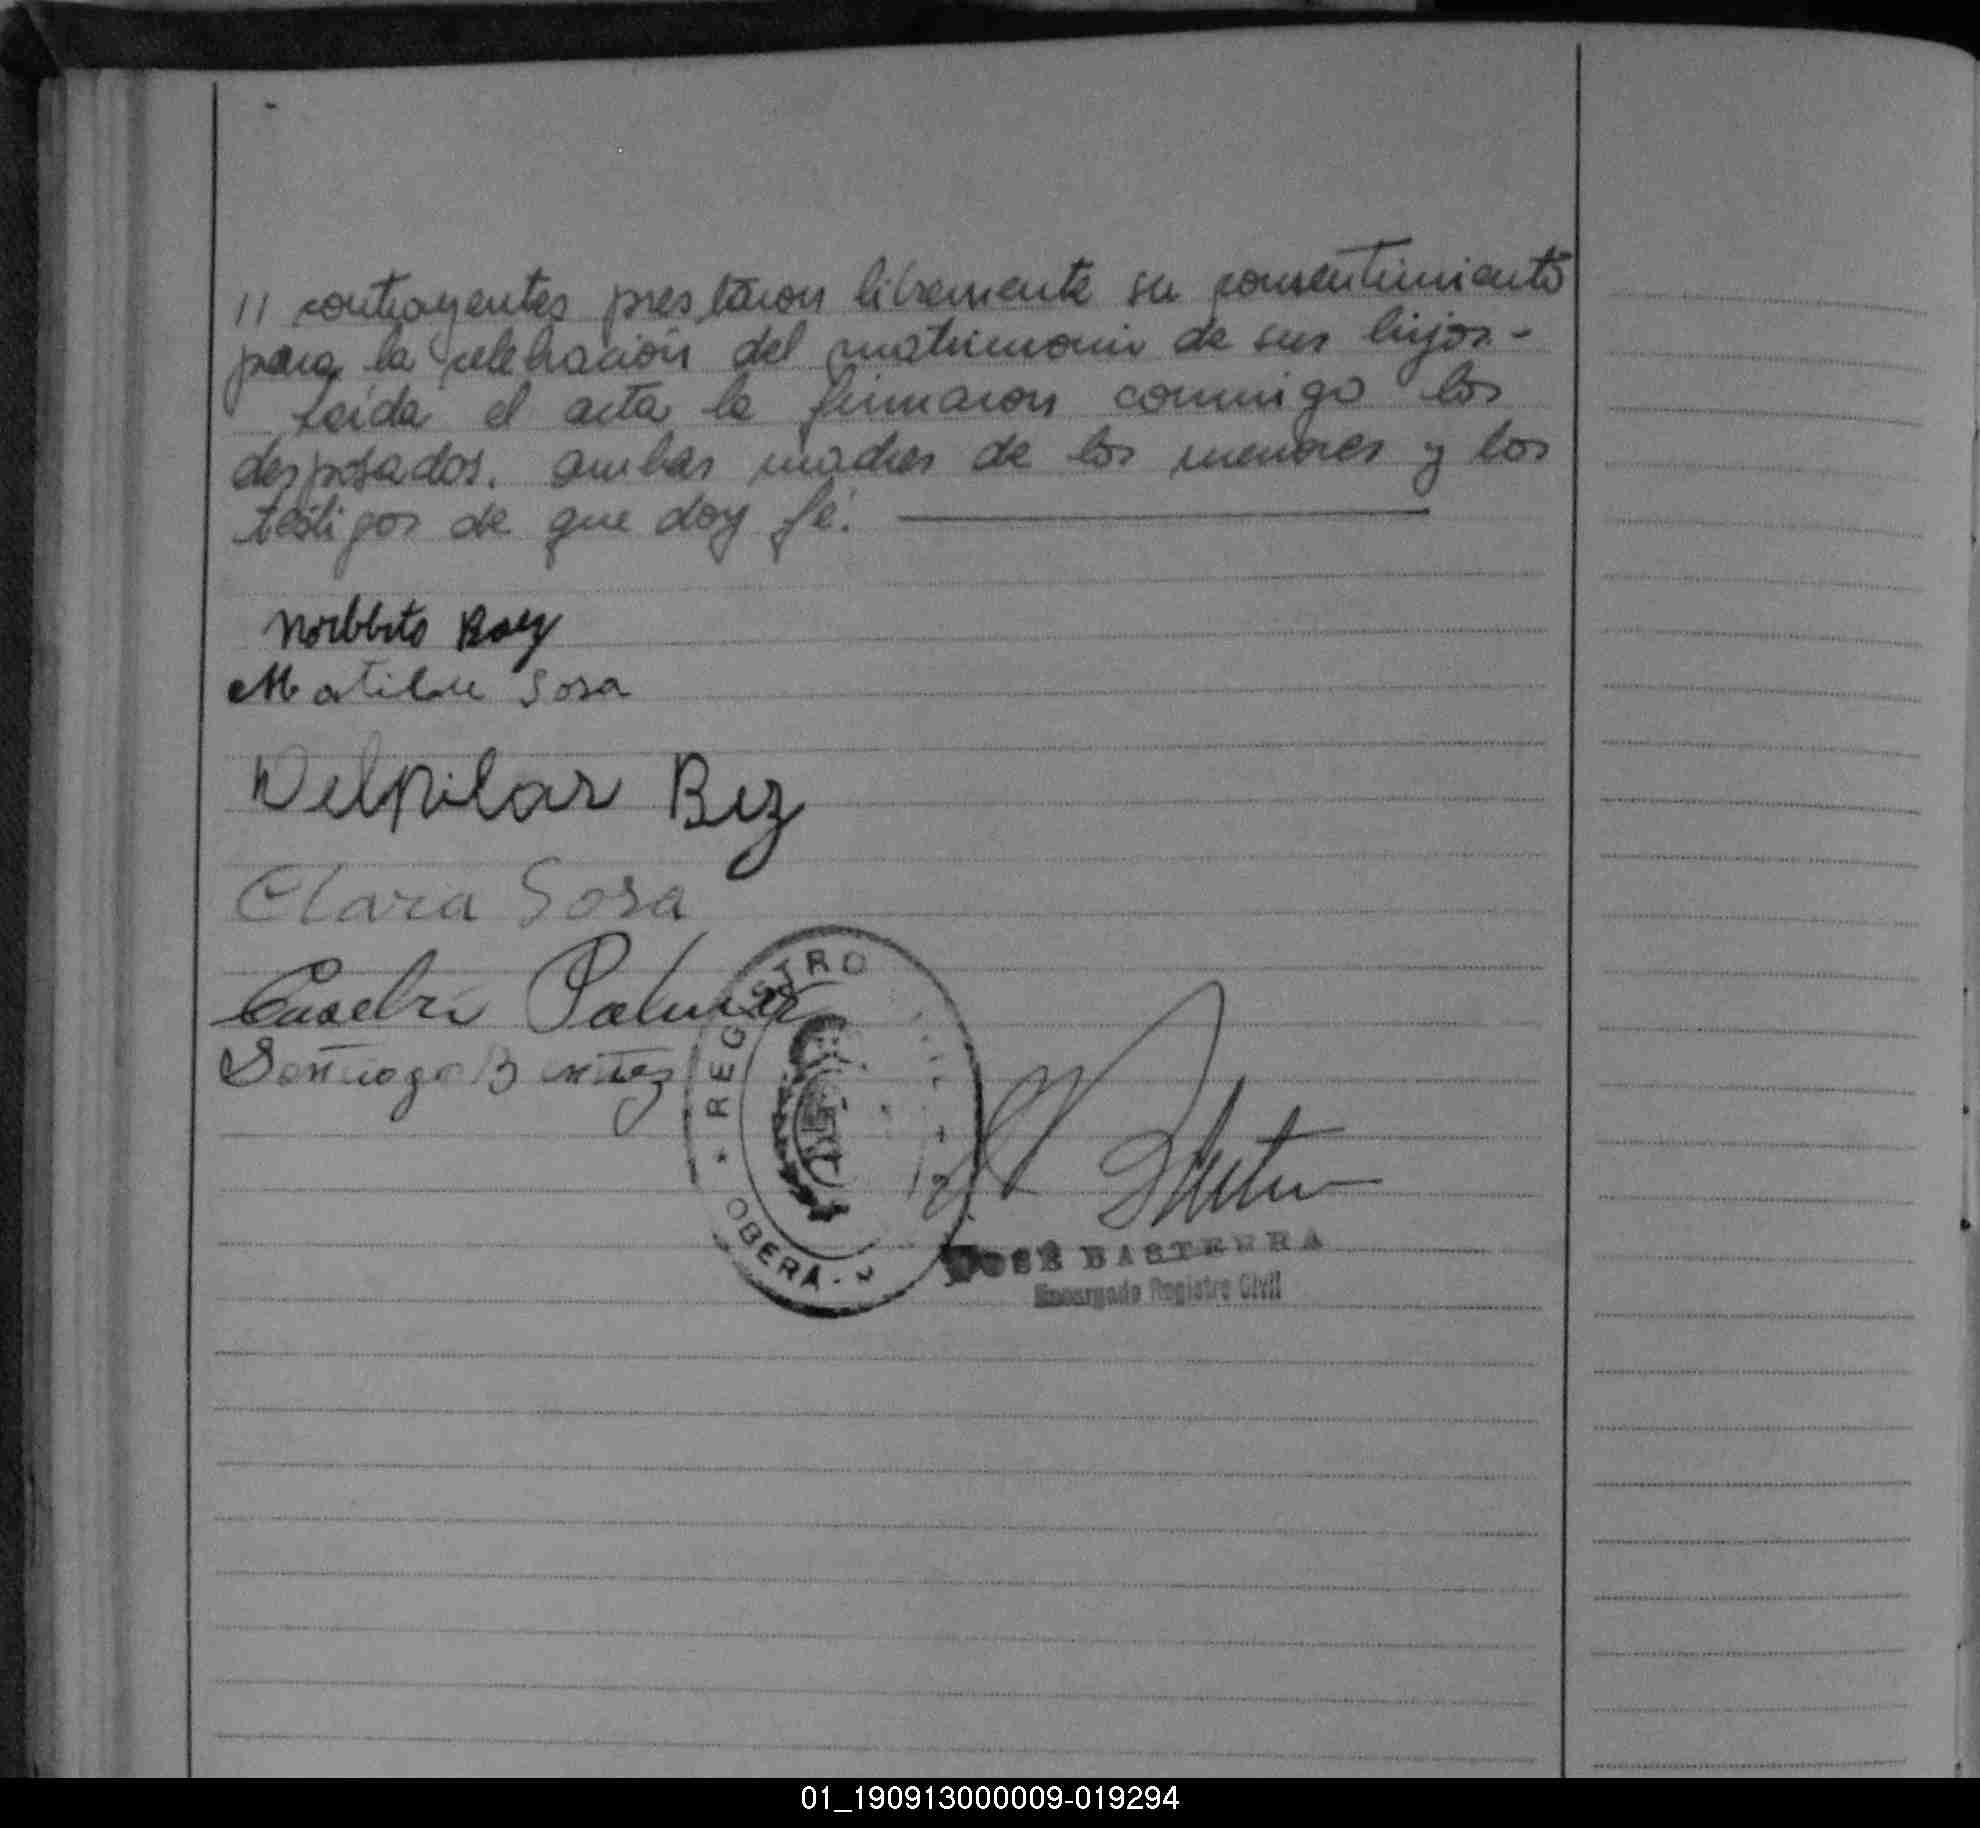 // contrayentes prestaron libremente su consentimiento
para la celebración del matrimonio de sus hijos.-
Leída el acta la firmaron conmigo los
desposados. ambas madres de los menores y los
testigos de que doy fé.
Norbbto Baez
Matilde Sosa
Delpilar Bez
Clara Sosa
Eusebio
Santiago Benitez
REGISTRO
OBERA
JOSÉ BASTERRA
Encargado Registro Civil
01_190913000009-019294